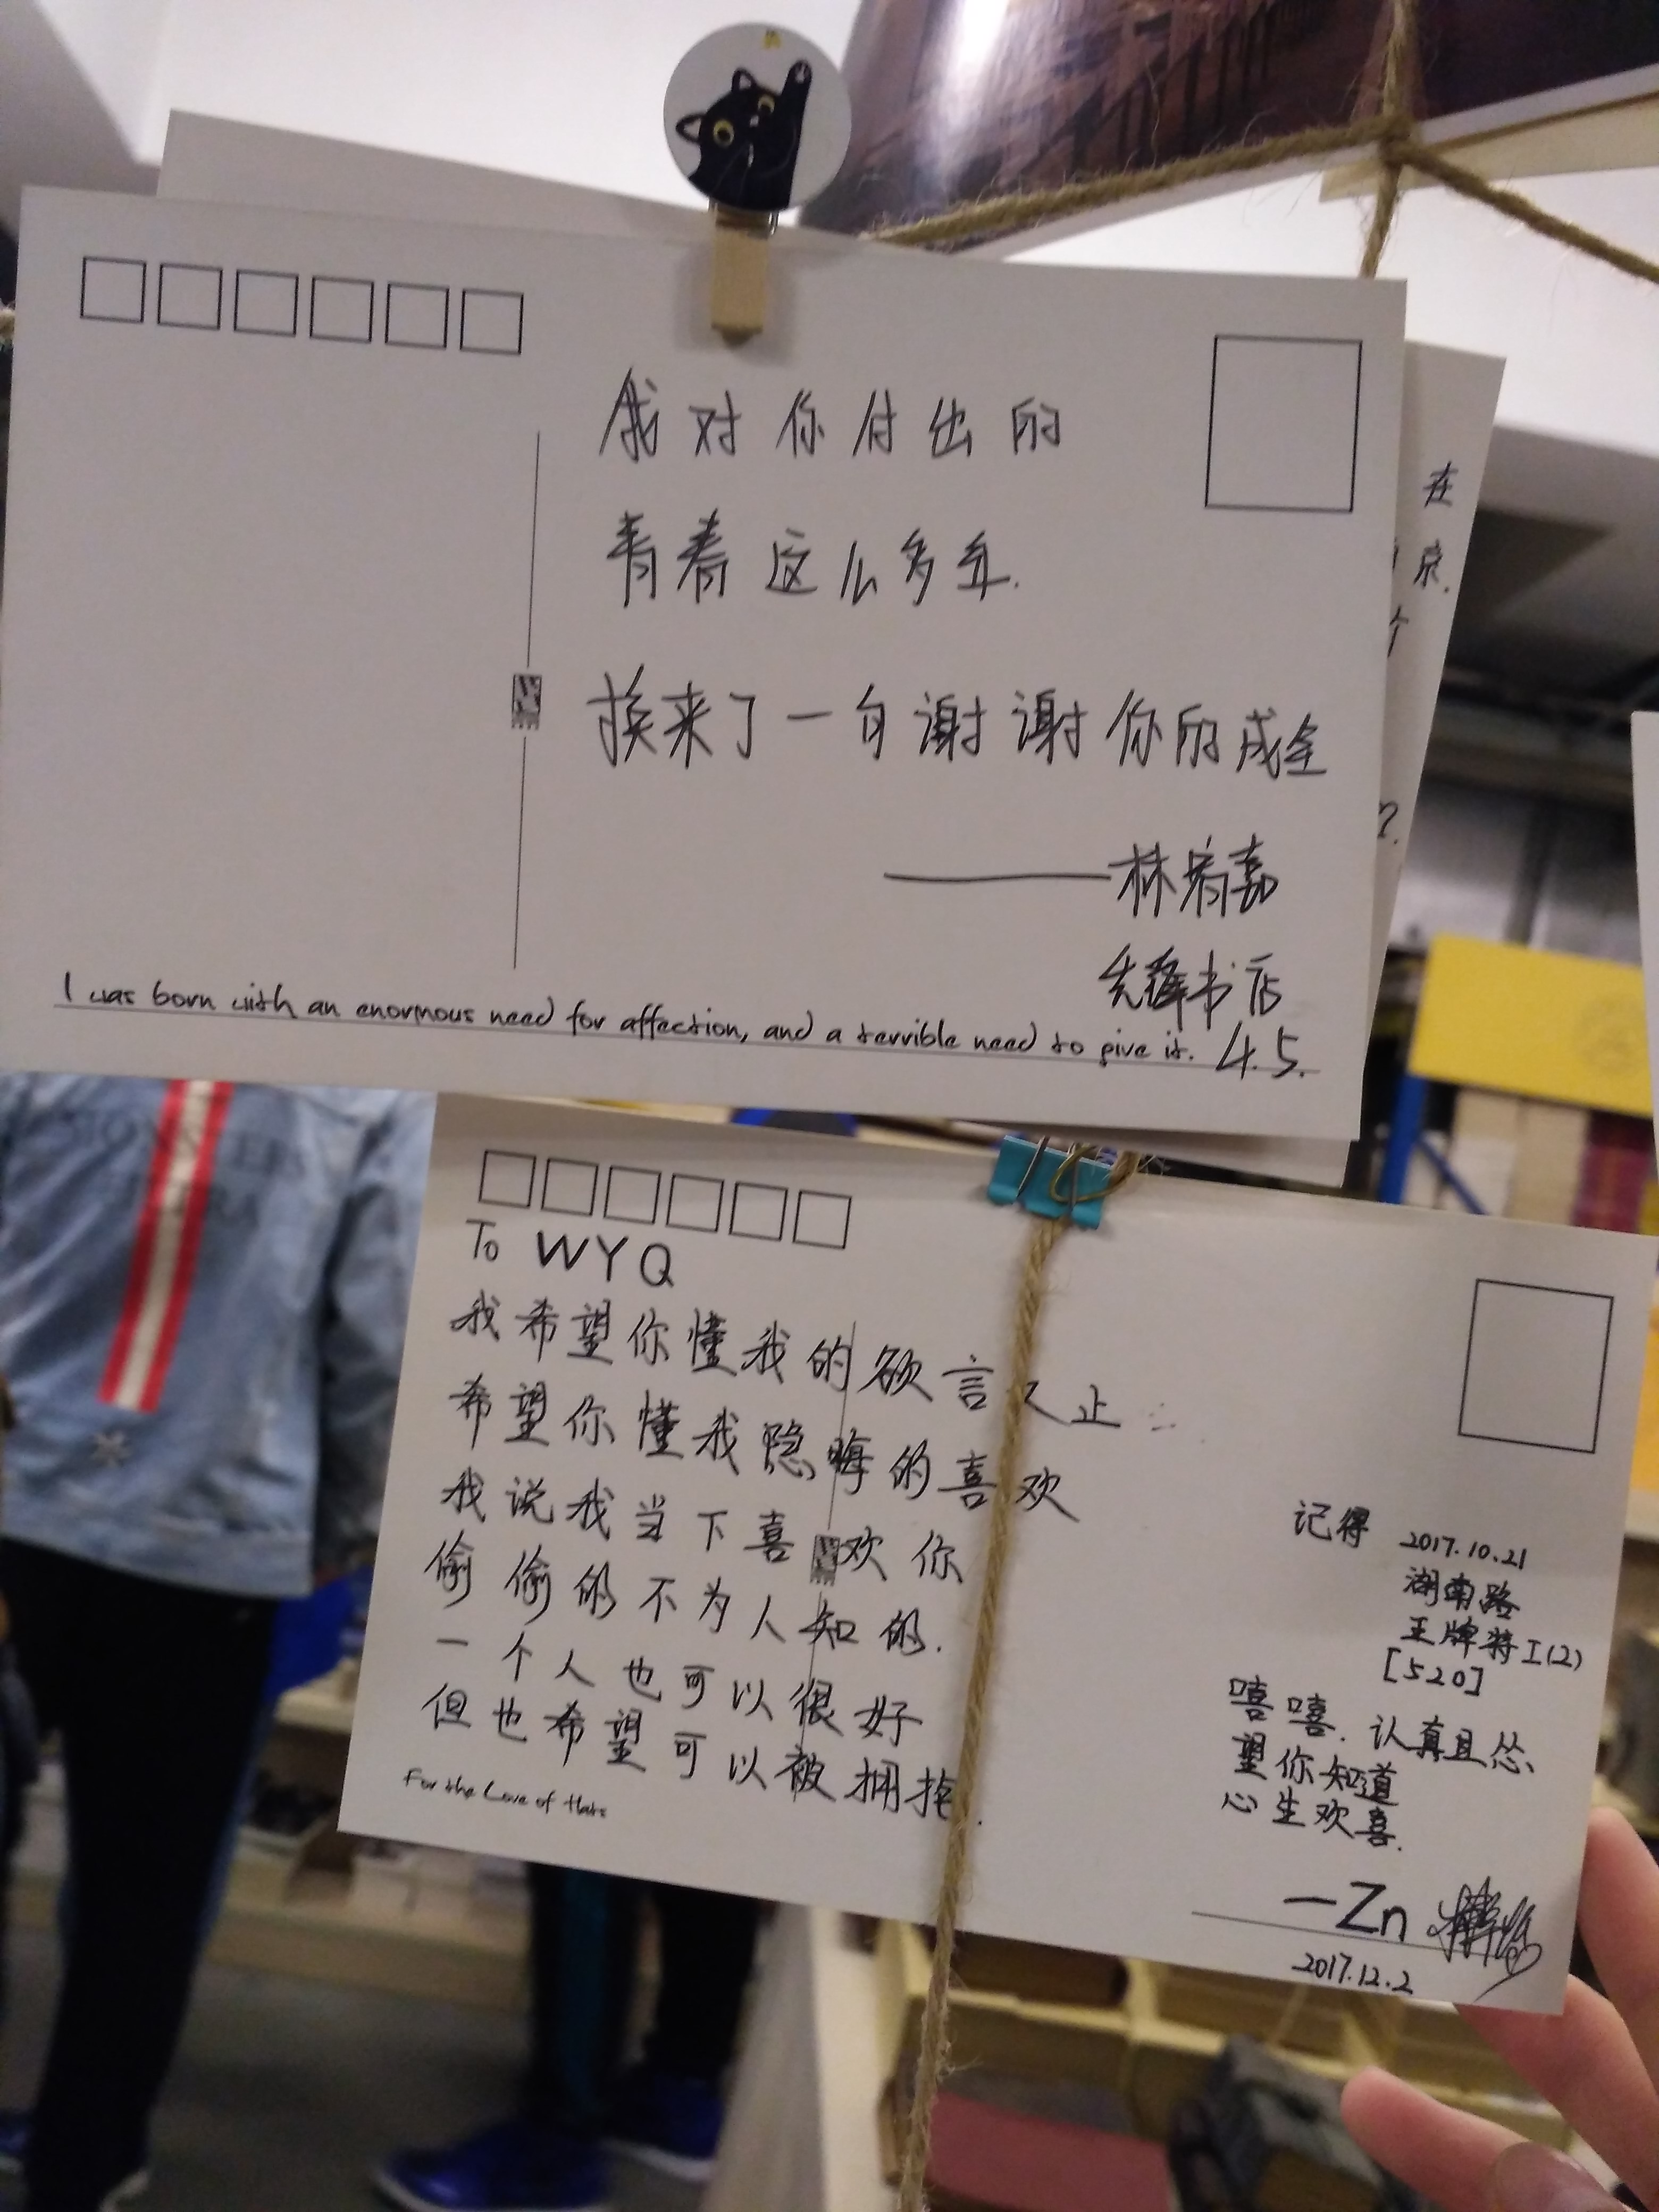 我对你付出的
青春这么多年.
换来了一句谢谢你的成全
——林宥嘉
先锋书店
4.5.
I was born with an enormous need for affection, and a terrible need to give it.
在
京.
个
2.
To WYQ
我希望你懂我的欲言又止
希望你懂我隐晦的喜欢
我说我当下喜欢你
偷偷的不为人知的.
一个人也可以很好
但也希望可以被拥抱.
For the Love of
记得 2017.10.21
湖南路
王牌特工(2)
[520]
嘻嘻.认真且怂
望你知道
心生欢喜.
—Zn
2017.12.2